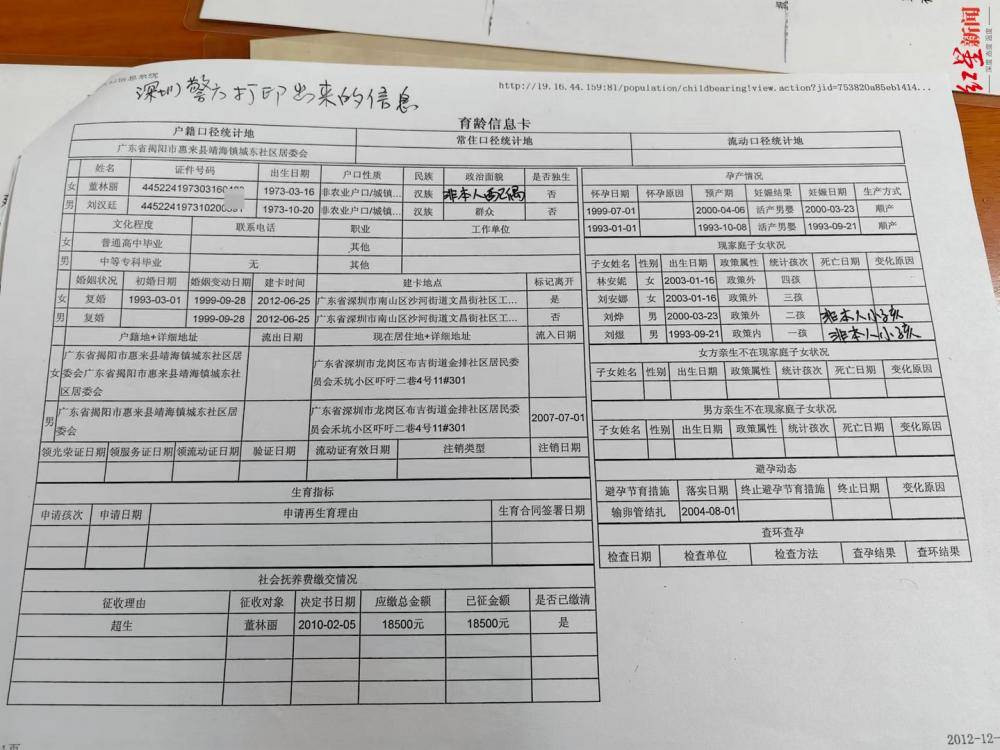 红星新闻
深度 态度 速度
信息系统
深圳警方打印出来的信息
http://19.16.44.159:81/population/childbearing!view.action?jid=753820a85eb1414...
育龄信息卡
户籍口径统计地 常住口径统计地 流动口径统计地
广东省揭阳市惠来县靖海镇城东社区居委会
姓名 证件号码 出生日期 户口性质 民族 政治面貌 是否独生
女 董林丽 445224197303160 1973-03-16 非农业户口/城镇... 汉族 非本人配偶 否
男 刘汉廷 445224197310200 1973-10-20 非农业户口/城镇... 汉族 群众 否
文化程度 联系电话 职业 工作单位
女 普通高中毕业 其他
男 中等专科毕业 无 其他
婚姻状况 初婚日期 婚姻变动日期 建卡时间 建卡地点 标记离开
女 复婚 1993-03-01 1999-09-28 2012-06-25 广东省深圳市南山区沙河街道文昌街社区工... 是
男 复婚 1999-09-28 2012-06-25 广东省深圳市南山区沙河街道文昌街社区工... 否
户籍地+详细地址 流出日期 现在居住地+详细地址 流入日期
女 广东省揭阳市惠来县靖海镇城东社区居
委会广东省揭阳市惠来县靖海镇城东社
区居委会
广东省深圳市龙岗区布吉街道金排社区居民委
员会禾坑小区吓吓二巷4号11#301
男 广东省揭阳市惠来县靖海镇城东社区居
委会
广东省深圳市龙岗区布吉街道金排社区居民委
员会禾坑小区吓吓二巷4号11#301
2007-07-01
领光荣证日期 领服务证日期 领流动证日期 验证日期 流动证有效日期 注销类型 注销日期
生育指标
申请孩次 申请日期 申请再生育理由 生育合同签署日期
社会抚养费缴交情况
征收理由 征收对象 决定书日期 应缴总金额 已征金额 是否已缴清
超生 董林丽 2010-02-05 18500元 18500元 是
孕产情况
怀孕日期 怀孕原因 预产期 妊娠结果 妊娠日期 生产方式
1999-07-01 2000-04-06 活产男婴 2000-03-23 顺产
1993-01-01 1993-10-08 活产男婴 1993-09-21 顺产
现家庭子女状况
子女姓名 性别 出生日期 政策属性 统计孩次 死亡日期 变化原因
林安妮 女 2003-01-16 政策外 四孩
刘安娜 女 2003-01-16 政策外 三孩
刘烨 男 2000-03-23 政策外 二孩 非本人小孩
刘煜 男 1993-09-21 政策内 一孩 非本人小孩
女方亲生不在现家庭子女状况
子女姓名 性别 出生日期 政策属性 统计孩次 死亡日期 变化原因
男方亲生不在现家庭子女状况
子女姓名 性别 出生日期 政策属性 统计孩次 死亡日期 变化原因
避孕动态
避孕节育措施 落实日期 终止避孕节育措施 终止日期 变化原因
输卵管结扎 2004-08-01
查环查孕
检查日期 检查单位 检查方法 查孕结果 查环结果
1页
2012-12-